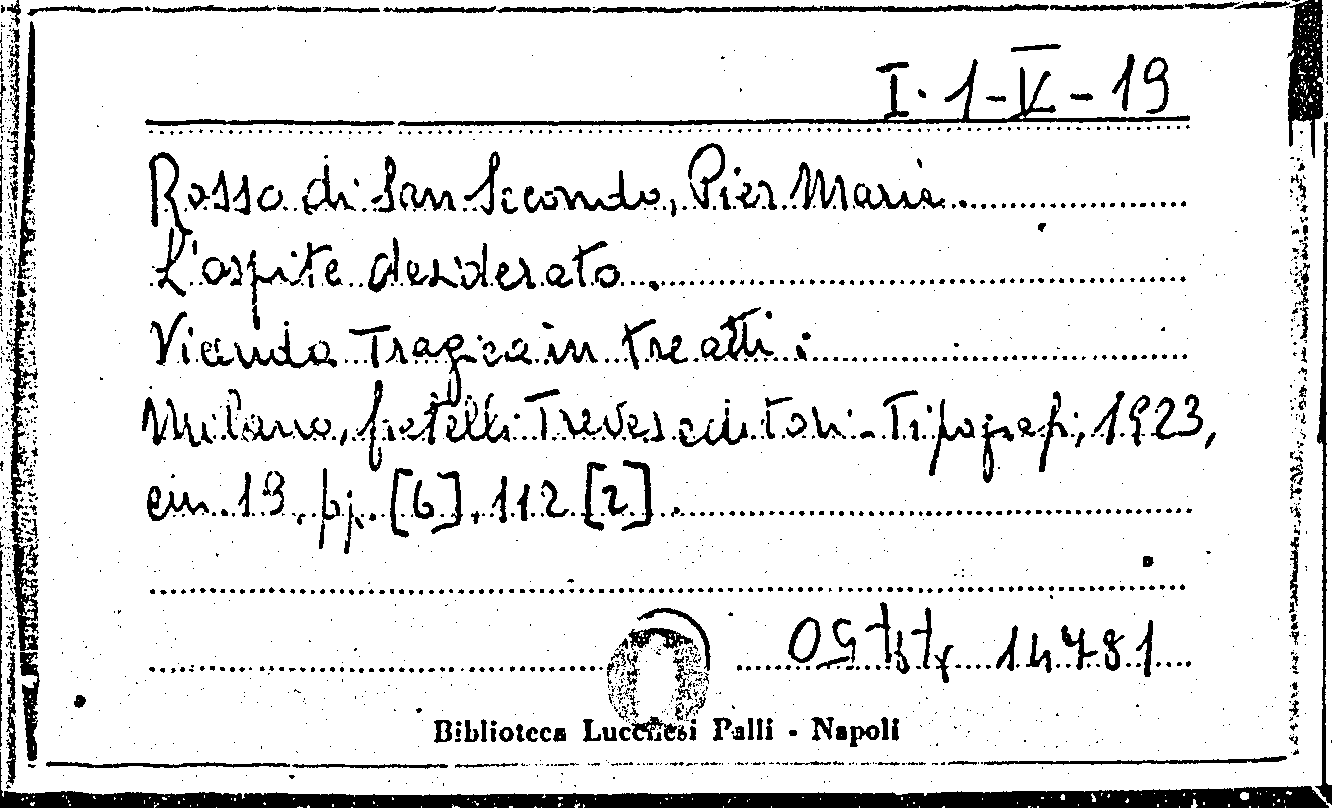 I. 1-V-19
Rosso di San Secondo, Pier Maria.
L'ospite desiderato.
Vicenda Tragica in tre atti:
Milano, fratelli Treves editori - Tipografi, 1923,
cm. 19, pp. [6], 112 [2].
14781
Biblioteca Lucchesi Palli - Napoli